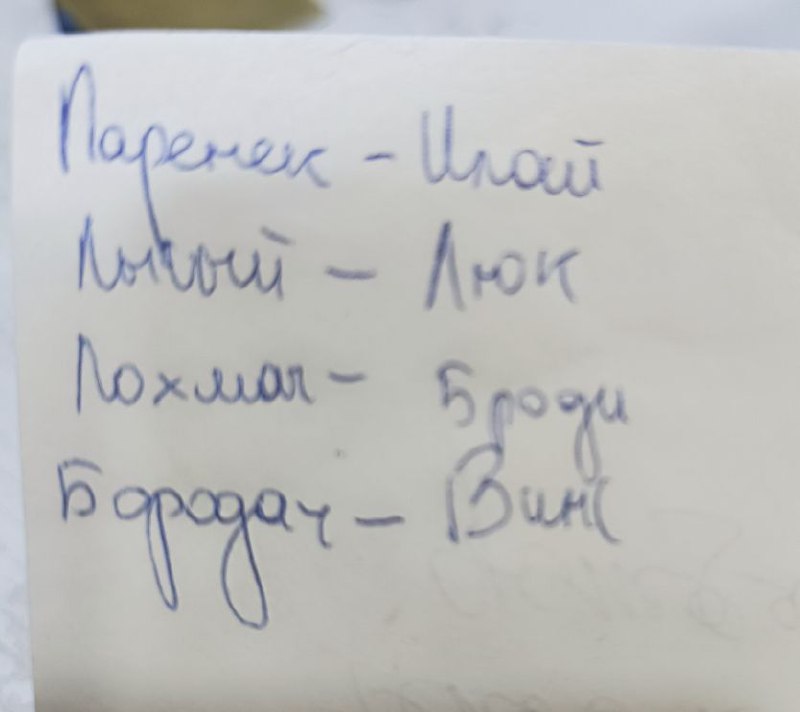 Паренек - Илай
Лысый - Люк
Лохмач - Броди
Бородач - Винс